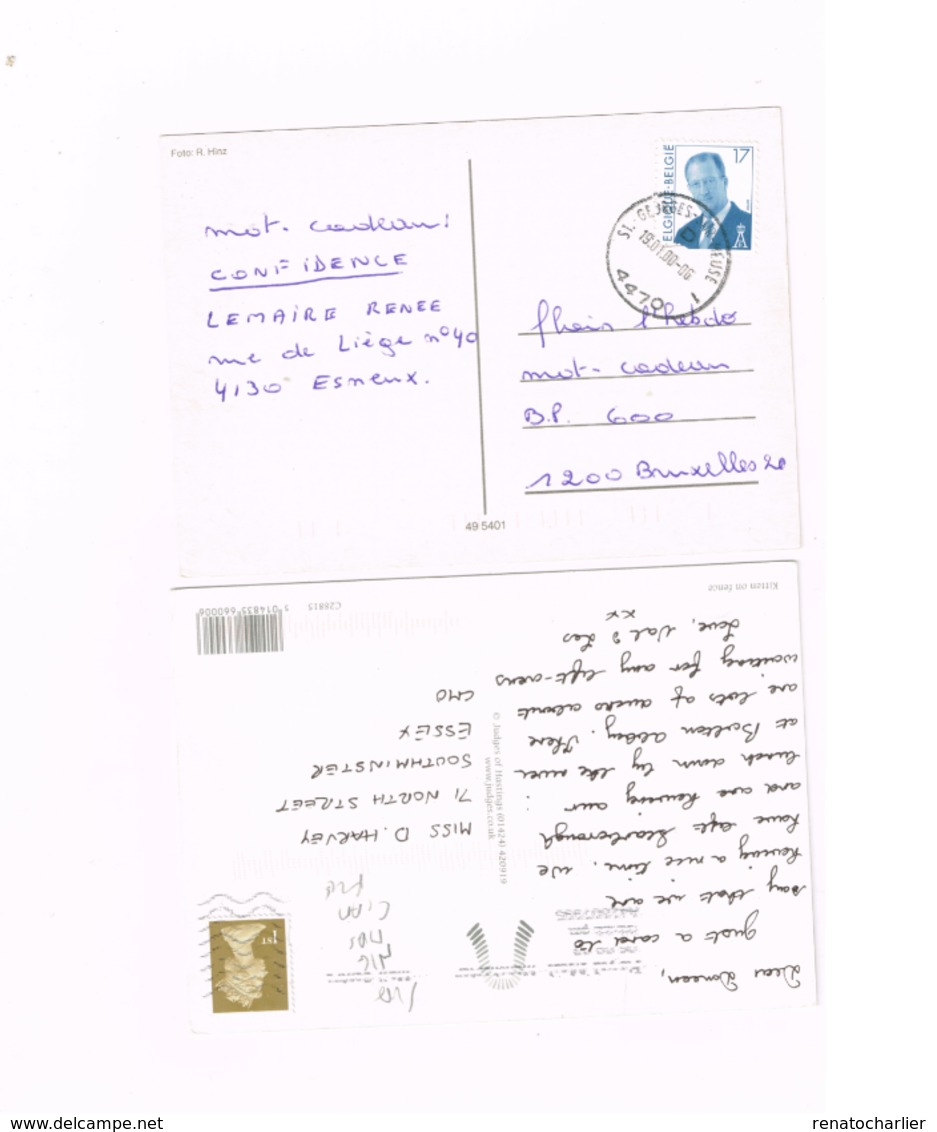 Foto: R. Hinz
mot - cadeau :
CONFIDENCE
LEMAIRE RENEE
rue de Liège n° 40
4130 Esneux.
49 5401
17
BELGIQUE-BELGIE
1
19.01.00-06
4470
l'hebdo
mot - cadeau
B.P. 600
1200 Bruxelles 20
Kitten on fence
Dear Doreen,
Just a card to
say that we are
having a nice time. we
have left Scarborough
and are having our
lunch down by the river
at Bolton Abbey. There
are lots of ducks about
waiting for any left-overs
Love, Val & Les
xx
© Judges of Hastings (01424) 420919
www.judges.co.uk
1ST
MISS D. HARVEY
71 NORTH STREET
SOUTHMINSTER
ESSEX
CM0
C28815
5 014835 660006
delcampe.net
renatocharlier